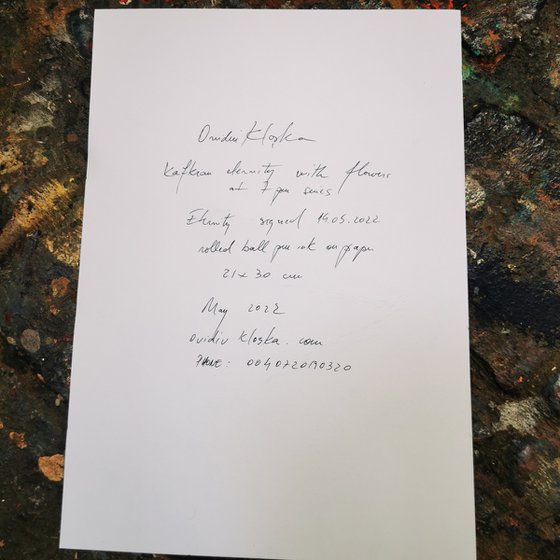 Ovidiu Kloska
Kafkian eternity with flowers
at 7 pm series
Eternity signed 14.05.2022
rolled ball pen ink on paper
21 x 30 cm
May 2022
ovidiu kloska . com
PHONE : 0040720190320